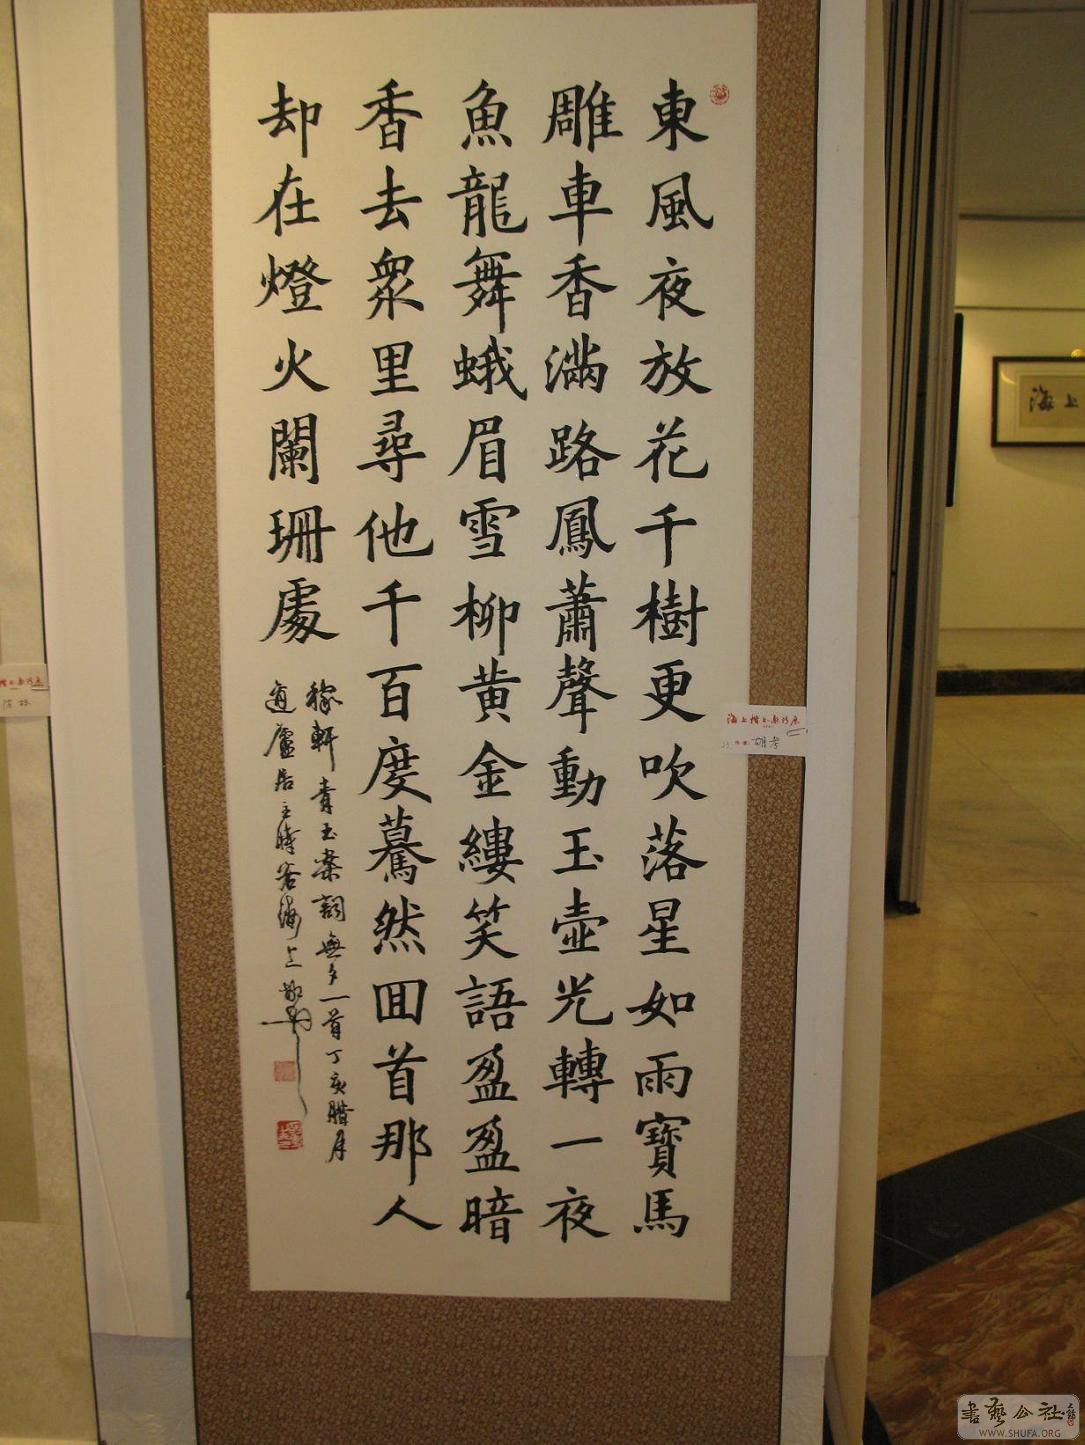 東風夜放花千樹更吹落星如雨寶馬
雕車香滿路鳳蕭聲動玉壺光轉一夜
魚龍舞蛾眉雪柳黄金縷笑語盈盈暗
香去眾里尋他千百度驀然回首那人
却在燈火闌珊處
稼軒青玉案詞無夕一首丁亥腊月
廬居主時客海上
海上
書藝公社
WWW.SHUFA.ORG